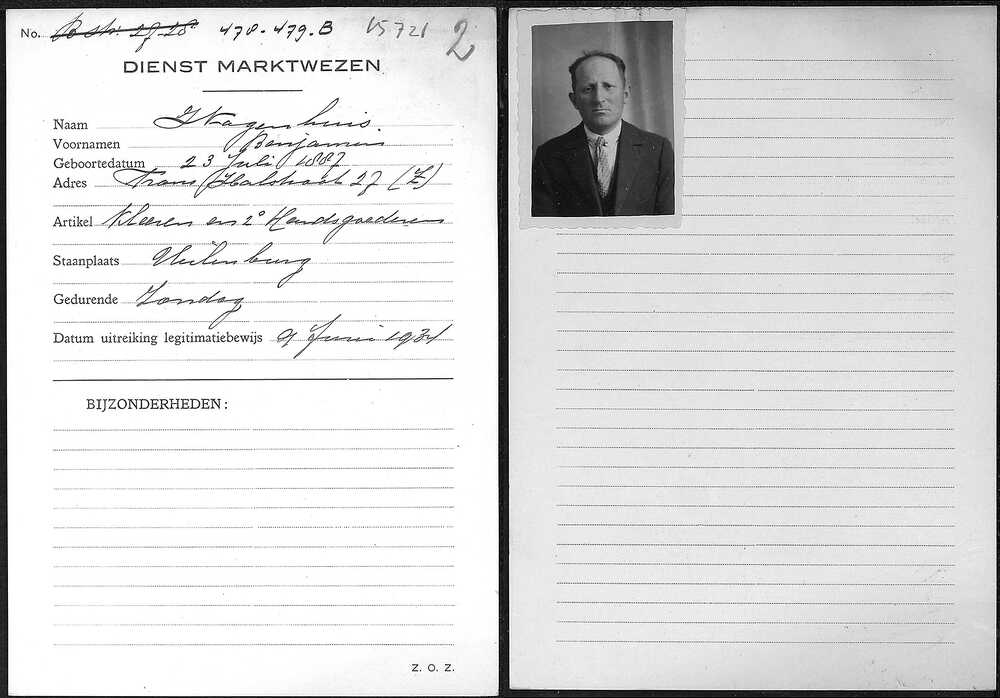 No. 478-479.B 15721 2
DIENST MARKTWEZEN
Naam Wagenhuis.
Voornamen Benjamin
Geboortedatum 23 Juli 1887
Adres Frans Halsstraat 27 (Z)
Artikel Kleeren en 2° Handsgoederen
Staanplaats Uilenburg
Gedurende Zondag
Datum uitreiking legitimatiebewijs 9 Juni 1931
BIJZONDERHEDEN:
Z. O. Z.